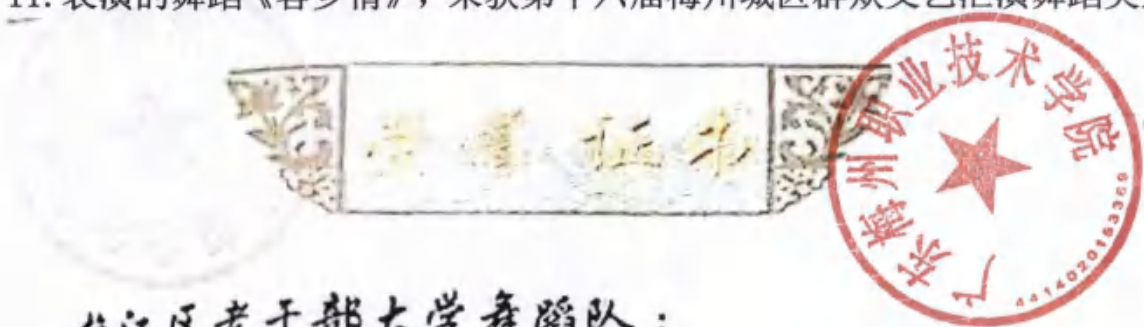 11. 表演的舞蹈《客乡情》，荣获第十六届梅州城区群众文艺汇演舞蹈类
荣誉证书
广东梅州职业技术学院
4414020153369
江区老干部大学舞蹈队：